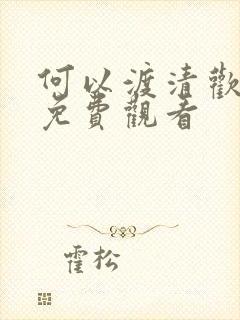 何以渡清歡
免費觀看
霍松